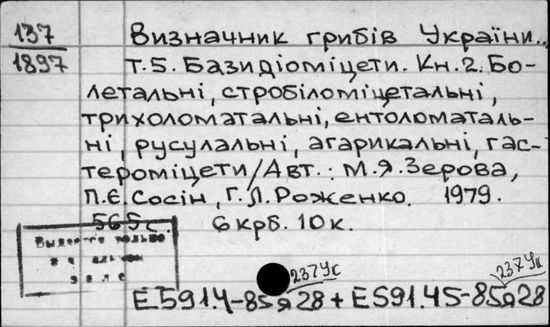 137
1897
Визначник грибів України..
т.5. Базидіоміцети. Кн.2. Бо-
летальні, стробіломіцетальні,
трихоломатальні, ентоломаталь-
ні, русулальні, агарикальні, гас-
тероміцети/Авт.: М.Я.Зерова,
П.Є.Сосін, Г.Л.Роженко. 1979.
565с. 6 крб. 10к.
только
зале
237Ук
237Ук
Е591.4-85я28 + Е591.45-85я28